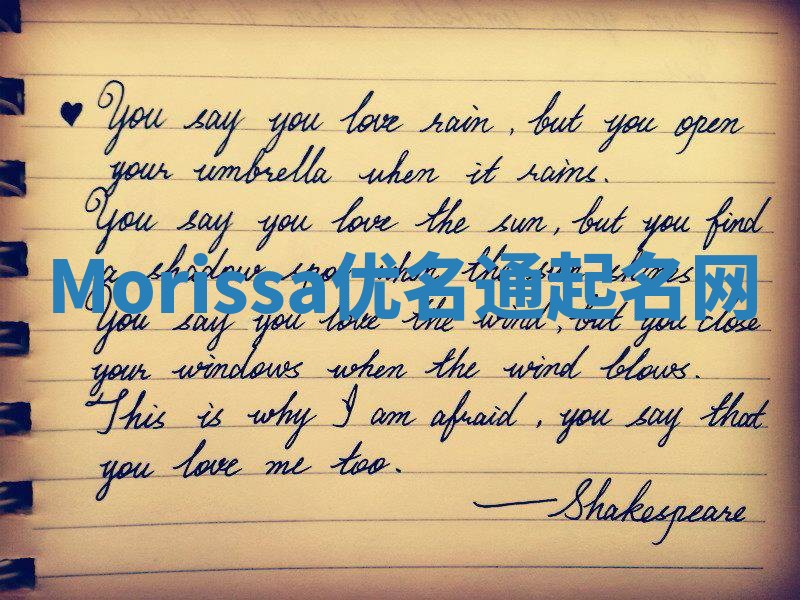 ♥ You say you love rain, but you open
your umbrella when it rains.
You say you love the sun, but you find
a shadow spot when the sun shines
Morissa优名通起名网
You say you love the wind, but you close
your windows when the wind blows.
This is why I am afraid, you say that
you love me too.
—Shakespeare